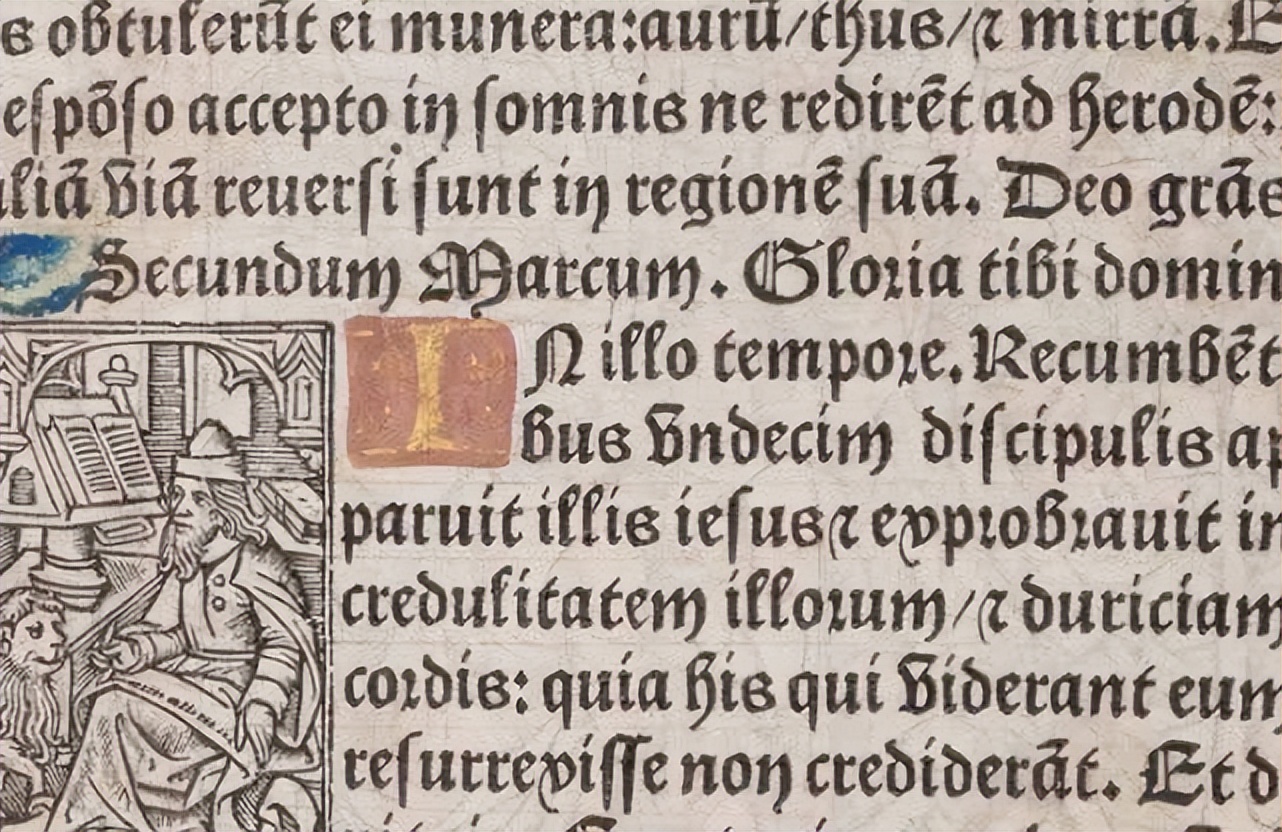 s obtulerūt ei munera:aurū/thus/⁊ mirrā.E
espōso accepto in somnis ne redirēt ad herodē:
aliā viā reuersi sunt in regionē suā. Deo grās
Secundum Marcum. Gloria tibi domin
IN illo tempore. Recumbēt
bus vndecim discipulis ap
paruit illis iesus⁊ exprobrauit in
credulitatem illorum/⁊ duriciam
cordis: quia his qui viderant eum
resurrexisse non crediderāt. Et d